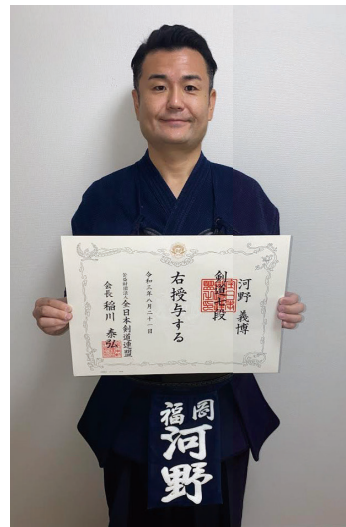 河野 義博
剣道七段
右授与する
令和三年八月二十一日
公益財団法人全日本剣道連盟
会長 稲川 泰弘
福岡
河野